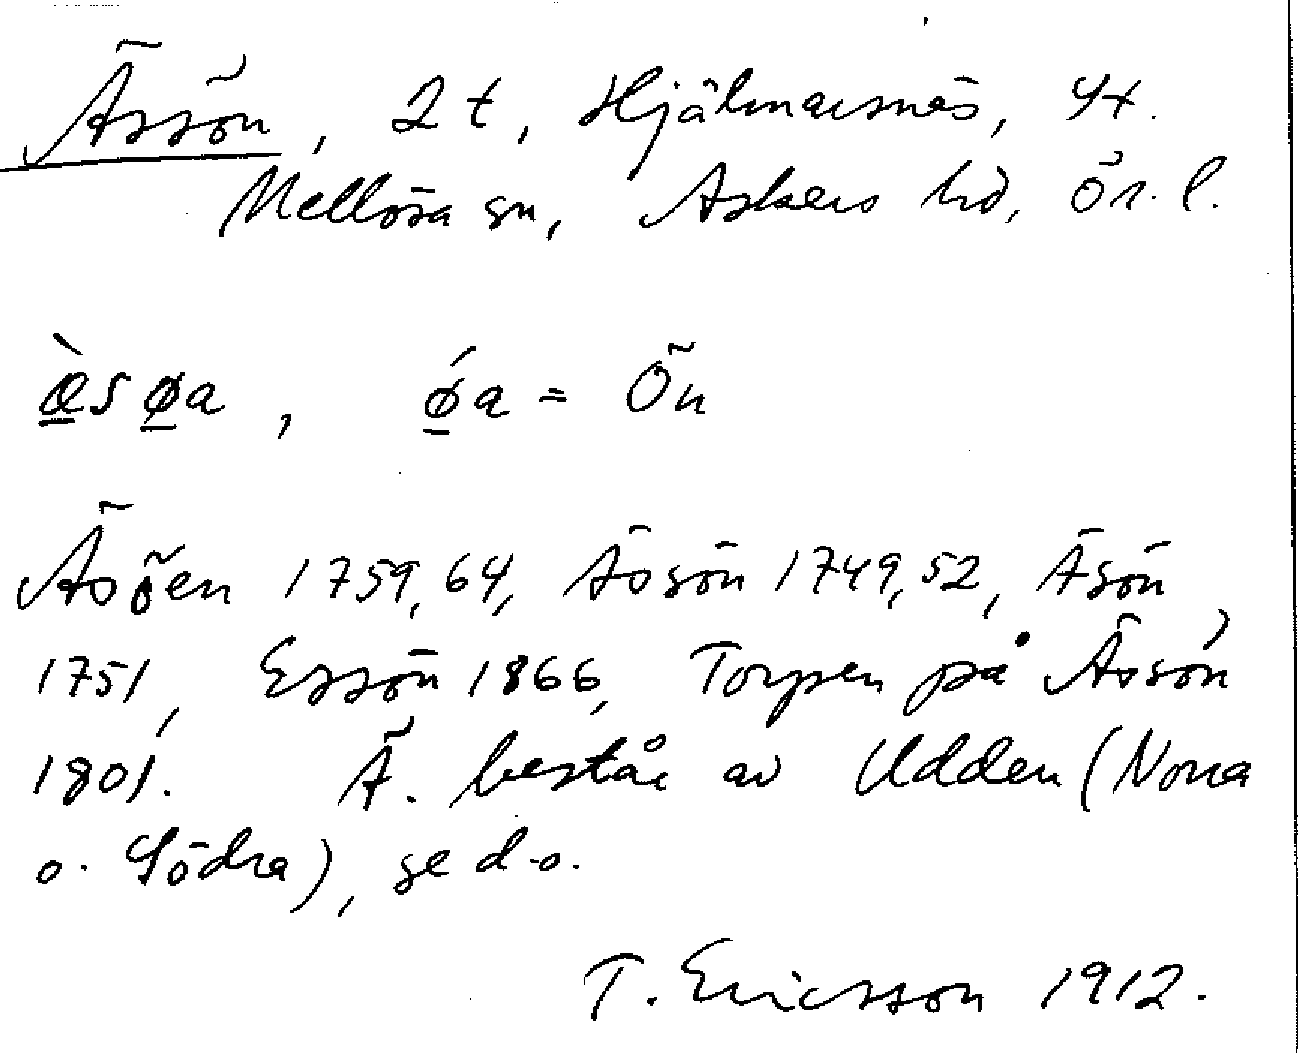 Ässön, 2 t, Hjälmarsnäs, St.
Mellösa sn, Askers hd, Ör. l.
æ̀søa, ǿa = Ön
Äsöen 1759, 64, Ässön 1749, 52, Äsön
1751, Essön 1866, Torpen på Ässön
1801. Ä. består av Udden (Norra
o. Södra), se d.o.
T. Ericsson 1912.